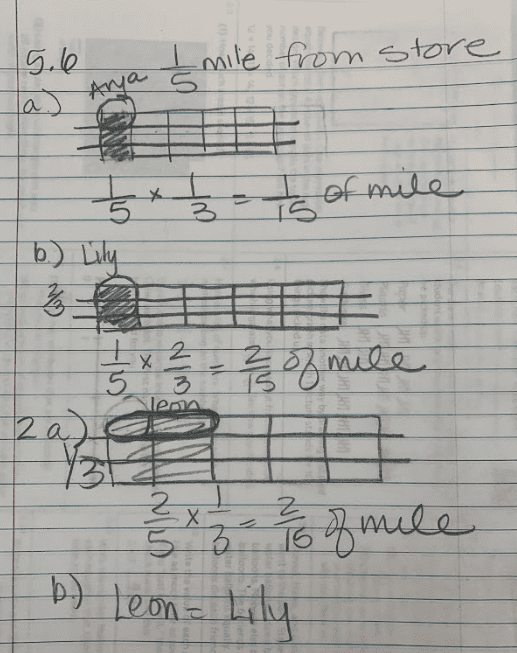 5.6 1/5 mile from store
a.) Anya
1/5 x 1/3 = 1/15 of mile
b.) Lily
2/3
1/5 x 2/3 = 2/15 of mile
Leon
2 a.)
1/3
2/5 x 1/3 = 2/15 of mile
b.) Leon = Lily